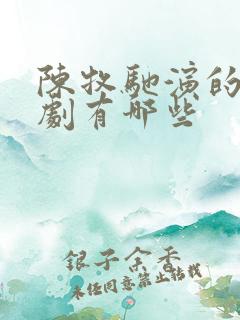 陳牧馳演的
劇有哪些
銀子金香
未經同意禁止转载